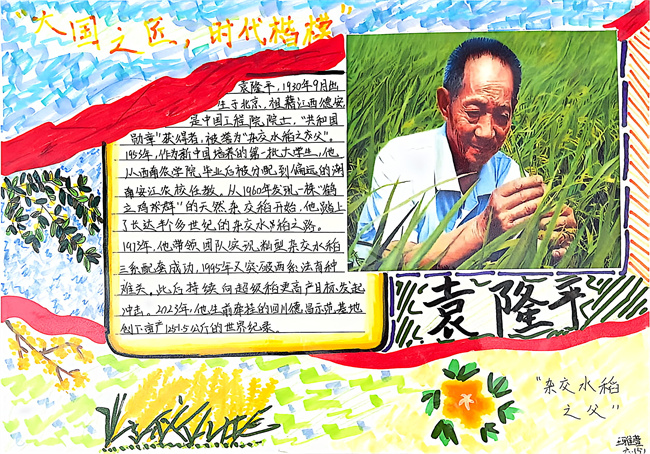 “大国之匠，时代楷模”
袁隆平，1930年9月出
生于北京，祖籍江西德安，
是中国工程院院士，“共和国
勋章”获得者，被誉为“杂交水稻之父”。
1953年，作为新中国培养的第一批大学生，他
从西南农学院毕业后被分配到偏远的湖
南安江农校任教。从1960年发现一株“鹤
立鸡群”的天然杂交稻开始，他踏上
了长达半个多世纪的杂交水稻之路。
1973年，他带领团队实现籼型杂交水稻
三系配套成功，1995年又突破两系法育种
难关。此后持续向超级稻更高产目标发起
冲击。2023年，他生前牵挂的四川德昌示范基地
创下亩产1251.5公斤的世界纪录。
袁隆平
“杂交水稻
之父”